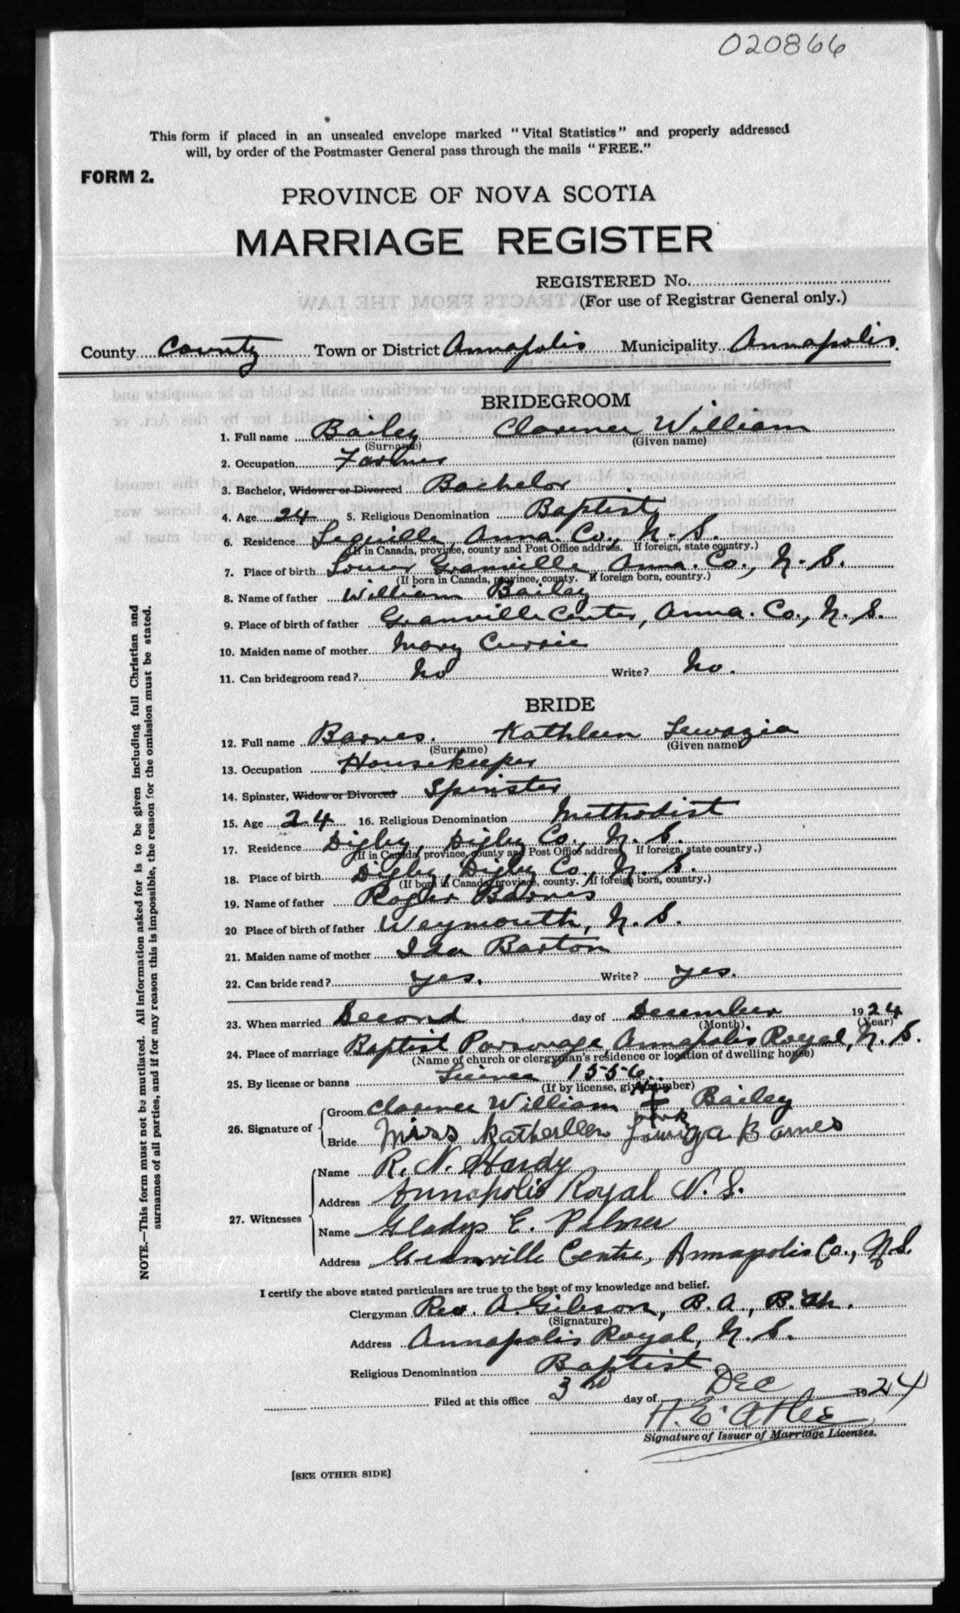 020866
This form if placed in an unsealed envelope marked "Vital Statistics" and properly addressed
will, by order of the Postmaster General pass through the mails "FREE."
FORM 2.
PROVINCE OF NOVA SCOTIA
MARRIAGE REGISTER
REGISTERED No.
(For use of Registrar General only.)
County County Town or District Annapolis Municipality Annapolis
BRIDEGROOM
1. Full name Bailey Clarence William
(Surname) (Given name)
2. Occupation Farmer
3. Bachelor, Widower or Divorced Bachelor
4. Age 24 5. Religious Denomination Baptist
6. Residence Lequille, Anna. Co., N. S.
(If in Canada, province, county and Post Office address. If foreign, state country.)
7. Place of birth Lower Granville, Anna. Co., N. S.
(If born in Canada, province, county. If foreign born, country.)
8. Name of father William Bailey
9. Place of birth of father Granville Center, Anna. Co., N. S.
10. Maiden name of mother Mary Currie
11. Can bridegroom read? No Write? No.
BRIDE
12. Full name Barnes. Kathleen
(Surname) (Given name)
13. Occupation Housekeeper
14. Spinster, Widow or Divorced Spinster
15. Age 24 16. Religious Denomination Methodist
17. Residence Digby, Digby Co., N. S.
(If in Canada, province, county and Post Office address. If foreign, state country.)
18. Place of birth Digby, Digby Co., N. S.
(If born in Canada, province, county. If foreign born, country.)
19. Name of father Roger Barnes
20 Place of birth of father Weymouth, N. S.
21. Maiden name of mother Ida Barton
22. Can bride read? yes. Write? yes.
23. When married Second day of December 1924
(Month) (Year)
24. Place of marriage Baptist Parsonage, Annapolis Royal, N. S.
(Name of church or clergyman's residence or location of dwelling house)
25. By license or banns License 1556
(If by license, give number)
26. Signature of Groom Clarence William X Bailey
Bride Miss Katherleen Barnes
27. Witnesses
Name R. N. Hardy
Address Annapolis Royal N. S.
Name Gladys E. Palmer
Address Granville Centre, Annapolis Co., N.S.
I certify the above stated particulars are true to the best of my knowledge and belief.
Clergyman Rev. A. Gibson, B. A., B. Th.
(Signature)
Address Annapolis Royal, N. S.
Religious Denomination Baptist
Filed at this office 3rd day of Dec 1924
H. E.
Signature of Issuer of Marriage Licenses.
[SEE OTHER SIDE]
NOTE.—This form must not be mutilated. All information asked for is to be given including full Christian and
surnames of all parties, and if for any reason this is impossible, the reason for the omission must be stated.